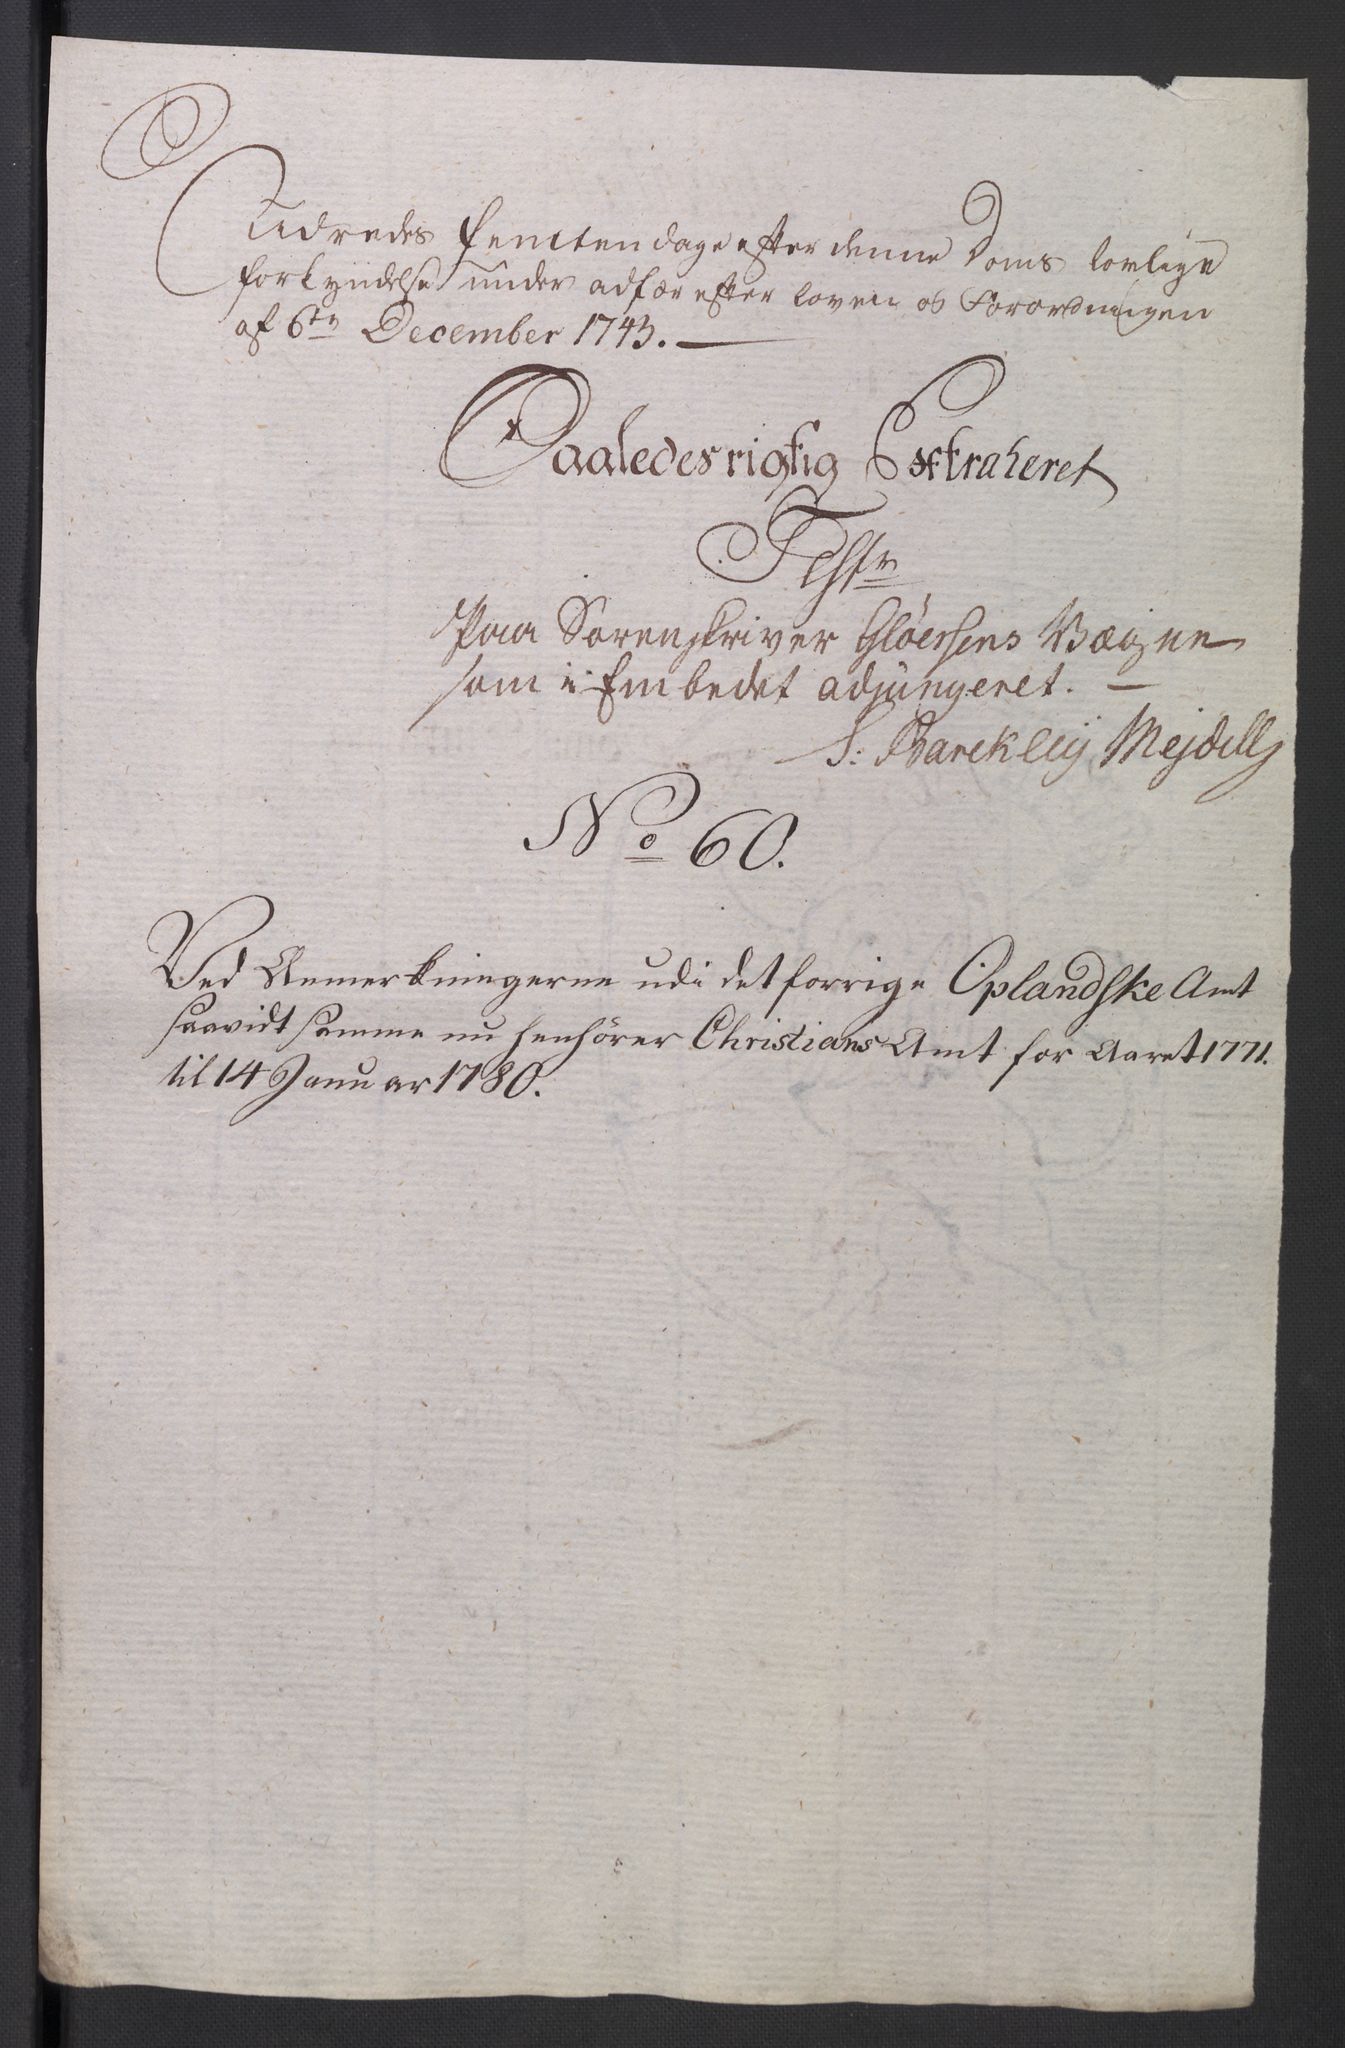 Udredes femten dage efter denne Doms lovlige
forkyndelse under adfær efter loven og Forordningen
af 6te December 1743.
Saaledes rigtig Extraheret
Test
Paa Sorenskriver Gløersens Vægne
som i Embedet adjungeret.
S: Barekleij Mejdell
No 60.
Ved Anmerkningerne udi det forrige Oplandske Amt
saavidt samme nu henhörer Christians Amt for Aaret 1771.
til 14 Januar 1780.